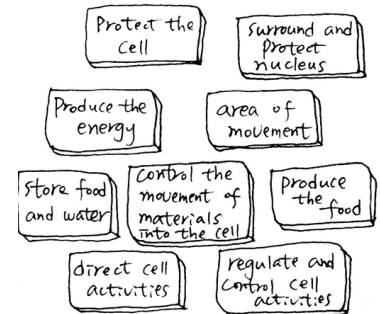 Protect the
cell
Surround and
Protect
nucleus
Produce the
energy
area of
movement
Store food
and water
Control the
movement of
materials
into the cell
Produce
the
food
direct cell
activities
regulate and
Control cell
activities